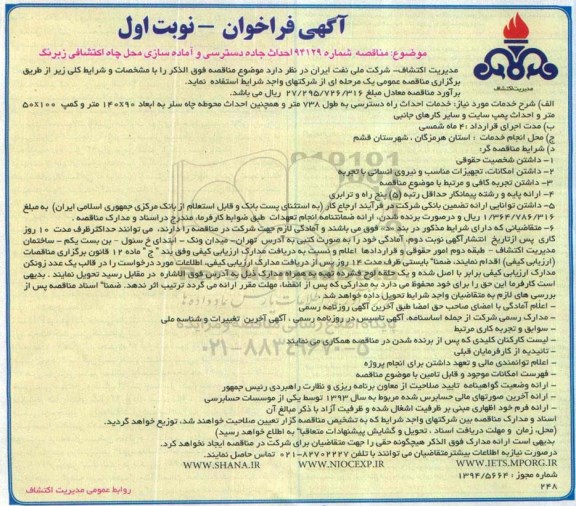 آگهی فراخوان - نوبت اول
موضوع: مناقصه شماره ۹۴۱۲۹ احداث جاده دسترسی و آماده سازی محل چاه اکتشافی زیرنگ
مدیریت اکتشاف
مدیریت اکتشاف- شرکت ملی نفت ایران در نظر دارد موضوع مناقصه فوق الذکر را با مشخصات و شرایط کلی زیر از طریق
برگزاری مناقصه عمومی یک مرحله ای از شرکتهای واجد شرایط استفاده نماید.
برآورد مناقصه معادل مبلغ ۲۷/۲۹۵/۷۲۶/۳۱۶ ریال می باشد.
الف) شرح خدمات مورد نیاز: خدمات احداث راه دسترسی به طول ۷۳۸ متر و همچنین احداث محوطه چاه سلر به ابعاد ۱۴۰x۹۰ متر و کمپ ۵۰x۱۰۰
متر و احداث پمپ سایت و سایر کارهای جانبی
ب) مدت اجرای قرارداد: ۴ ماه شمسی
ج) محل انجام خدمات : استان هرمزگان ، شهرستان قشم
د) شرایط مناقصه گر:
۱- داشتن شخصیت حقوقی
۲- داشتن امکانات، تجهیزات مناسب و نیروی انسانی با تجربه
۳- داشتن تجربه کافی و مرتبط با موضوع مناقصه
۴- ارائه پایه و رشته پیمانکار حداقل رتبه (۵) پنج راه و ترابری
۵- داشتن توانایی ارائه تضمین بانکی شرکت در فرآیند ارجاع کار (به استثنای پست بانک و قابل استعلام از بانک مرکزی جمهوری اسلامی ایران) به مبلغ
۱/۳۶۴/۷۸۶/۳۱۶ ریال و درصورت برنده شدن، ارائه ضمانتنامه انجام تعهدات طبق ضوابط کارفرما، مندرج در اسناد و مدارک مناقصه .
۶- متقاضیانی که دارای شرایط مذکور در بند «د» فوق می باشند و آمادگی لازم جهت شرکت در مناقصه را دارند، می توانند حداکثر ظرف مدت ۱۰ روز
کاری پس از تاریخ انتشار آگهی نوبت دوم، آمادگی خود را به صورت کتبی به آدرس تهران- میدان ونک - ابتدای خ سئول - بن بست یکم - ساختمان
مدیریت اکتشاف - طبقه دوم امور حقوقی و قراردادها اعلام و نسبت به دریافت مدارک ارزیابی کیفی وفق بند "ج" ماده ۱۲ قانون برگزاری مناقصات
(ارزیابی کیفی) اقدام نمایند، ضمنا" بایستی ظرف مدت ۱۴ روز پس از دریافت مدارک ارزیابی کیفی، اطلاعات مورد درخواست را در قالب یک عدد زونکن
مدارک ارزیابی کیفی برابر با اصل شده و یک حلقه لوح فشرده تهیه به همراه مدارک ذیل به آدرس فوق الاشاره در مقابل رسید تحویل نمایند . بدیهی
است کارفرما این حق را برای خود محفوظ می دارد به مدارکی که پس از انقضاء مهلت مقرر ارائه می گردد ترتیب اثر ندهد. ضمنا" اسناد مناقصه پس از
بررسی های لازم به متقاضیان واجد شرایط تحویل داده خواهد شد.
- اعلام آمادگی با امضای صاحب حق امضا طبق آخرین آگهی روزنامه رسمی
- مدارک رسمی شرکت از جمله اساسنامه، آگهی تاسیس در روزنامه رسمی ، آگهی آخرین تغییرات و شناسه ملی
- سوابق و تجربه کاری مرتبط
- لیست کارکنان کلیدی که پس از برنده شدن در مناقصه همکاری می نمایند
- تائیدیه از کارفرمایان قبلی
- اعلام توانمندی مالی و تعهد داشتن برای انجام پروژه
- فهرست امکانات موجود و قابل تامین با موضوع مناقصه
- ارائه وضعیت گواهینامه تایید صلاحیت از معاون برنامه ریزی و نظارت راهبردی رئیس جمهور
- ارائه آخرین صورتهای مالی حسابرس شده مربوط به سال ۱۳۹۳ توسط یکی از موسسات حسابرسی
- ارائه فرم خود اظهاری مبنی بر ظرفیت اشغال شده و ظرفیت آزاد با ذکر مبالغ آن
- اسناد و مدارک مناقصه بین شرکتهای واجد شرایط که به تشخیص مناقصه گزار تعیین صلاحیت خواهند شد، توزیع خواهد گردید.
(محل، زمان و مهلت دریافت اسناد ، تحویل و گشایش پیشنهادات متعاقبا" به اطلاع خواهد رسید)
بدیهی است ارائه مدارک فوق الذکر هیچگونه حقی را جهت متقاضیان برای شرکت در مناقصه ایجاد نخواهد کرد.
درصورت نیاز به اطلاعات بیشتر متقاضیان می توانند با تلفن ۸۲۷۰۲۲۲۷-۰۲۱ تماس حاصل نمایند.
WWW.SHANA.IR WWW.NIOCEXP.IR WWW.IETS.MPORG.IR
شماره مجوز : ۱۳۹۴/۵۶۶۴
۲۴۸
روابط عمومی مدیریت اکتشاف
۰۲۱-۸۸۳۴۹۶۷۰-۵